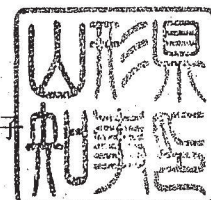 山形県
知事印